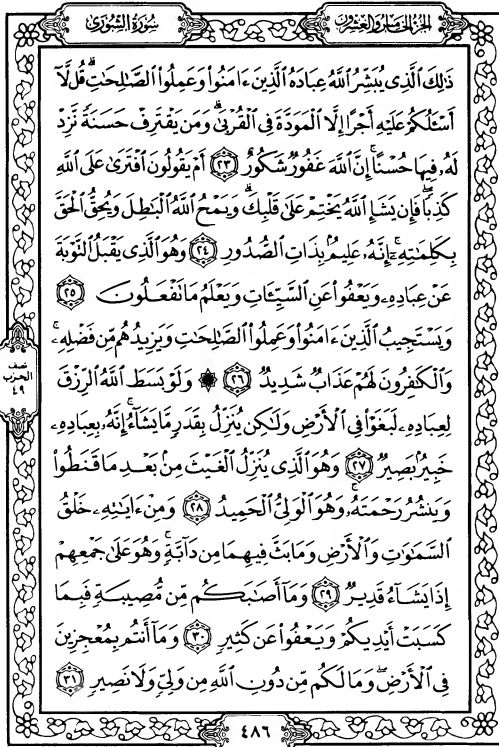 سُورَةُ الشُّورَىٰ
الجُزءُ الخَامِسُ وَالعِشْرُونَ
ذَٰلِكَ ٱلَّذِى يُبَشِّرُ ٱللَّهُ عِبَادَهُ ٱلَّذِينَ ءَامَنُوا۟ وَعَمِلُوا۟ ٱلصَّٰلِحَٰتِ ۗ قُل لَّآ
أَسْـَٔلُكُمْ عَلَيْهِ أَجْرًا إِلَّا ٱلْمَوَدَّةَ فِى ٱلْقُرْبَىٰ ۗ وَمَن يَقْتَرِفْ حَسَنَةً نَّزِدْ
لَهُۥ فِيهَا حُسْنًا ۚ إِنَّ ٱللَّهَ غَفُورٌ شَكُورٌ ٢٣ أَمْ يَقُولُونَ ٱفْتَرَىٰ عَلَى ٱللَّهِ
كَذِبًا ۖ فَإِن يَشَإِ ٱللَّهُ يَخْتِمْ عَلَىٰ قَلْبِكَ ۗ وَيَمْحُ ٱللَّهُ ٱلْبَٰطِلَ وَيُحِقُّ ٱلْحَقَّ
بِكَلِمَٰتِهِۦٓ ۚ إِنَّهُۥ عَلِيمٌۢ بِذَاتِ ٱلصُّدُورِ ٢٤ وَهُوَ ٱلَّذِى يَقْبَلُ ٱلتَّوْبَةَ
عَنْ عِبَادِهِۦ وَيَعْفُوا۟ عَنِ ٱلسَّيِّـَٔاتِ وَيَعْلَمُ مَا تَفْعَلُونَ ٢٥
وَيَسْتَجِيبُ ٱلَّذِينَ ءَامَنُوا۟ وَعَمِلُوا۟ ٱلصَّٰلِحَٰتِ وَيَزِيدُهُم مِّن فَضْلِهِۦ ۚ
وَٱلْكَٰفِرُونَ لَهُمْ عَذَابٌ شَدِيدٌ ٢٦ ۞ وَلَوْ بَسَطَ ٱللَّهُ ٱلرِّزْقَ
لِعِبَادِهِۦ لَبَغَوْا۟ فِى ٱلْأَرْضِ وَلَٰكِن يُنَزِّلُ بِقَدَرٍ مَّا يَشَآءُ ۚ إِنَّهُۥ بِعِبَادِهِۦ
خَبِيرٌۢ بَصِيرٌ ٢٧ وَهُوَ ٱلَّذِى يُنَزِّلُ ٱلْغَيْثَ مِنۢ بَعْدِ مَا قَنَطُوا۟
وَيَنشُرُ رَحْمَتَهُۥ ۚ وَهُوَ ٱلْوَلِىُّ ٱلْحَمِيدُ ٢٨ وَمِنْ ءَايَٰتِهِۦ خَلْقُ
ٱلسَّمَٰوَٰتِ وَٱلْأَرْضِ وَمَا بَثَّ فِيهِمَا مِن دَآبَّةٍ ۚ وَهُوَ عَلَىٰ جَمْعِهِمْ
إِذَا يَشَآءُ قَدِيرٌ ٢٩ وَمَآ أَصَٰبَكُم مِّن مُّصِيبَةٍ فَبِمَا
كَسَبَتْ أَيْدِيكُمْ وَيَعْفُوا۟ عَن كَثِيرٍ ٣٠ وَمَآ أَنتُم بِمُعْجِزِينَ
فِى ٱلْأَرْضِ ۖ وَمَا لَكُم مِّن دُونِ ٱللَّهِ مِن وَلِىٍّ وَلَا نَصِيرٍ ٣١
نصف
الحزب
٤٩
٤٨٦